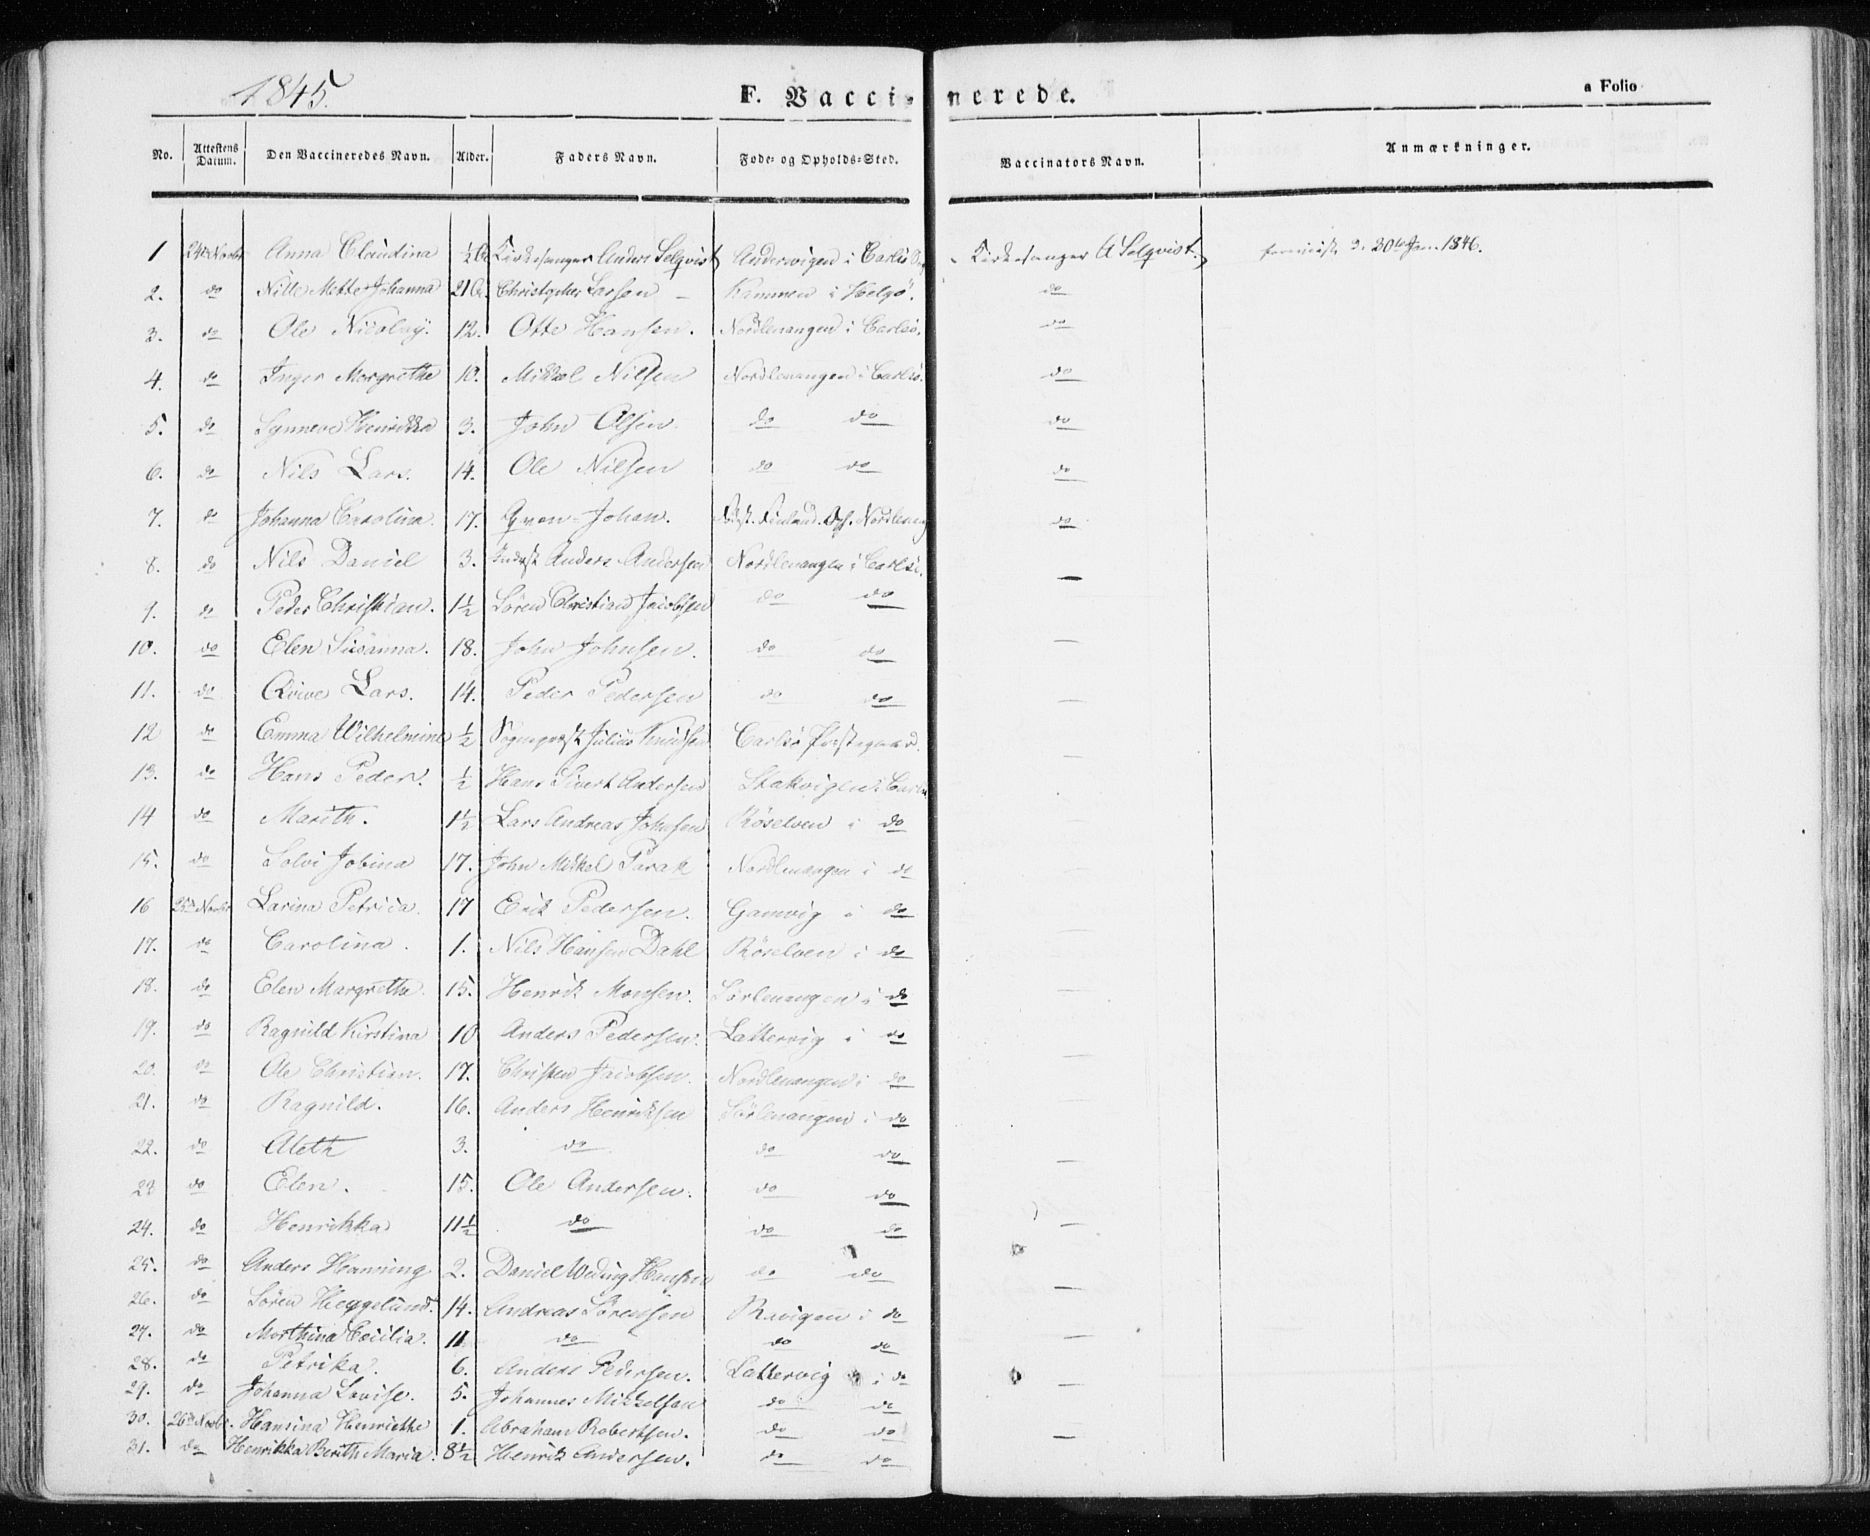 1845.
F. Vaccinerede.
a Folio
No. Attestens Datum. Den Vaccineredes Navn. Alder. Faders Navn. Føde- og Opholds-Sted. Vaccinators Navn. Anmærkninger.
1 24de Novbr Anna Claudina ½ Kirkesanger Anders Selqvist i Carlsö Kirkesanger A Selqvist. 30te Jan. 1846.
2. do Nille Mette Johanna 21 Christopher Larsen - i Helgö. do
3. do Ole Nicolay. 12. Otte Hansen. Nordlenangen i Carlsö. do
4. do Inger Margrethe 10. Mikkel Nilsen Nordlenangen i Carlsö. do
5. do Synneve Henrikka 3. John Olsen. do do do
6. do Nils Lars. 14. Ole Nilsen do do do
7. do Johanna Carolina. 17. Qven-Johan. Finland. Nordlenang do
8. do Nils Daniel 3. Anders Andersen Nordlenangen i Carlsö. —
9. do Peder Christian. 1½ Sören Christian Jacobsen do do
10. do Elen Susanna. 18. John Johnsen. do do —
11. do Qvive Lars. 14. Peder Pedersen do do —
12 do Emma Wilhelmine ½ Sognepræst Julius Knudsen Carlsö Præstegaard. —
13. do Hans Peder. ½ Hans Sivert Andersen Stakvigen i Carlsö —
14 do Marith. 1½ Lars Andreas Johnsen Röselven i do —
15. do Solvi Jobina 17. John Mikkel Parak Nordlenangen i do —
16 25de Novbr Larina Petrica. 17 Erik Pedersen. Gamvig i do —
17. do Carolina. 1. Nils Hansen Dahl Röselven i do —
18. do Elen Margrethe. 15. Henrik Monsen. Sörlenangen i do —
19. do Ragnild Kirstina 10 Anders Pedersen. Lattervig i do —
20. do Ole Christian. 17. Christen Jacobsen. Nordlenangen i do —
21. do Ragnild. 16. Anders Henriksen Sörlenangen i do —
22. do Aleth 3. do do do —
23 do Elen. 15. Ole Andersen. do do
24. do Henrikka 11½ do do do —
25. do Anders Henning 2. Daniel Weding Hansen do do
26. do Sören Heggelund. 14. Andreas Sörensen i do —
27. do Morthina Cecilia. 11 do do do —
28. do Petrika. 6. Anders Pedersen. Lattervig i do
29. do Johanna Lovise. 5. Johannes Mikkelsen do do —
30. 26de Novbr. Hansina Henriette 1. Abraham Robertsen. do do —
31. do Henrikka Berith Maria. 8½ Henrik Andersen. do do